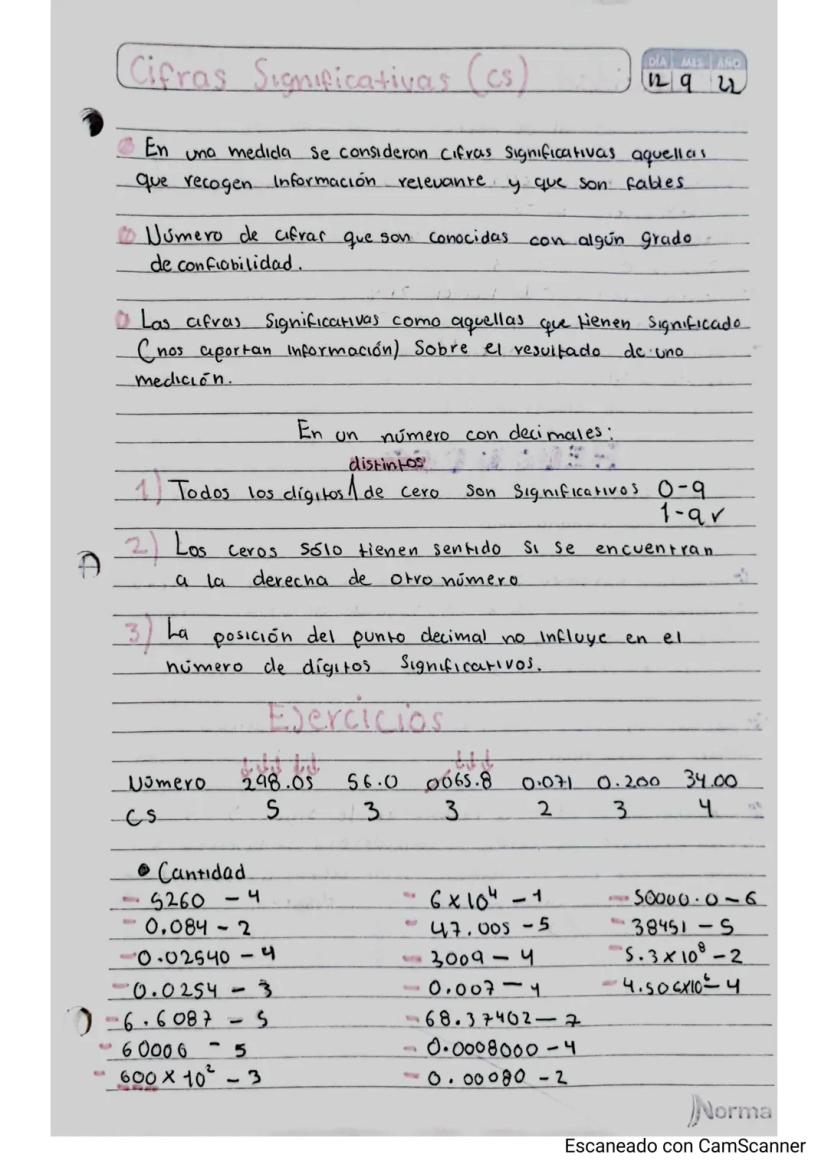 Cifras Significativas (cs)
DÍA MES AÑO
12 9 22
En una medida se consideran cifras significativas aquellas
que recogen información relevante y que son fables
Número de cifras que son conocidas con algún grado
de confiabilidad.
Las cifras significativas como aquellas que tienen significado
(nos aportan información) sobre el resultado de una
medición.
En un número con decimales:
distintos
1) Todos los dígitos de cero son significativos 0-9
1-9 ✓
2) Los ceros sólo tienen sentido si se encuentran
a la derecha de otro número
3) La posición del punto decimal no influye en el
número de dígitos significativos.
Ejercicios
Número 298.05 56.0 0065.8 0.071 0.200 34.00
CS 5 3 3 2 3 4
• Cantidad
- 5260 - 4 - 6 x 10⁴ - 1 - 50000.0 - 6
- 0.084 - 2 - 47.005 - 5 - 38451 - 5
- 0.02540 - 4 - 3009 - 4 - 5.3 x 10⁸ - 2
- 0.0254 - 3 - 0.007 - 1 - 4.506x10² - 4
- 6.6087 - 5 - 68.37402 - 7
- 60006 - 5 - 0.0008000 - 4
- 600 x 10² - 3 - 0.00080 - 2
Norma
Escaneado con CamScanner